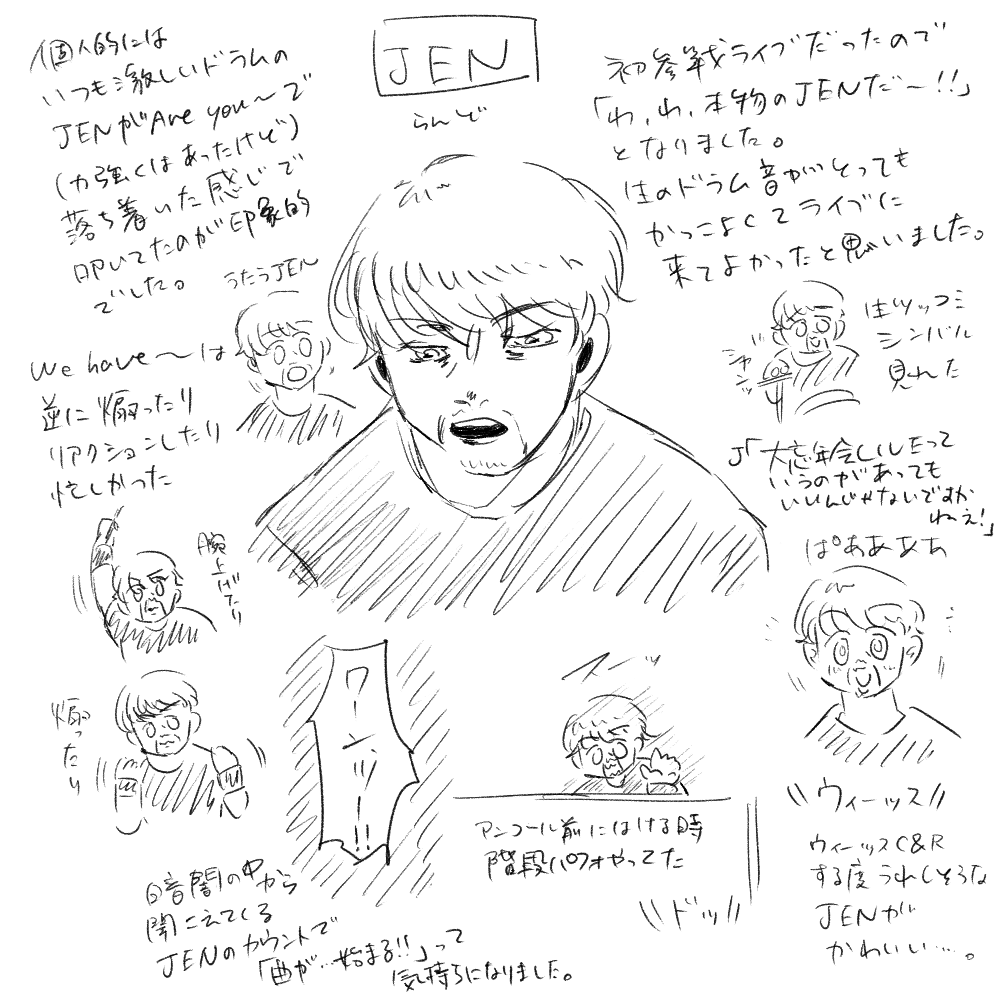 JEN
らんど
個人的には
いつも激しいドラムの
JENがAre you〜で
(力強くはあったけど)
落ち着いた感じで
叩いてたのが印象的
でした。
うたうJEN
初参戦ライブだったので
「わ、わ、本物のJENだ〜!!」
となりました。
生のドラム音がとっても
かっこよくてライブに
来てよかったと思いました。
We have〜は
逆に煽ったり
リアクションしたり
忙しかった
腕上げたり
煽ったり
シャンッ
生ツッコミ
シンバル
見れた
J「大忘年会しルEって
いうのがあっても
いいんじゃないですか
ねえ!」
ぱああああ
\\ウィーッス//
ウィーッスC&R
する度うれしそうな
JENが
かわいい…。
ワーンッ!!
暗闇の中から
聞こえてくる
JENのカウントで
「曲が…始まる!!」って
気持ちになりました。
スーッ
アンコール前にはける時
階段パフォやってた
\\ドッ//